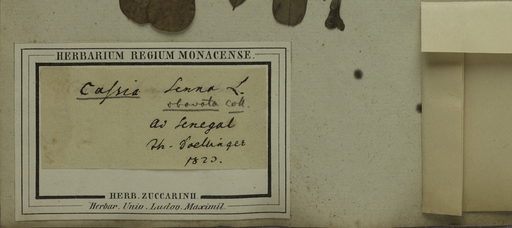 HERBARIUM REGIUM MONACENSE.
Cassia Senna L.
obovata Coll.
ad Senegal
Th. Doellinger
1823.
HERB. ZUCCARINII
Herbar. Univ. Ludov. Maximil.